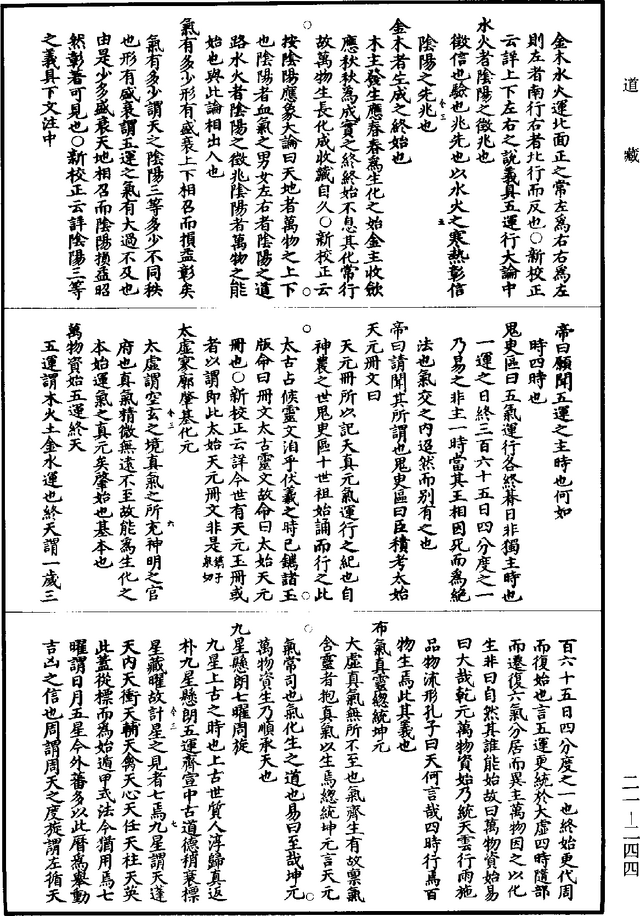 道藏
金木水火運北面正之常左爲右右爲左
則左者南行右者北行而反也○新校正
云詳上下左右之說義具五運行大論中
水火者陰陽之徵兆也
徵信也驗也兆先也以水火之寒熱彰信
陰陽之先兆也
卷三
五
金木者生成之終始也
木主發生應春春爲生化之始金主收斂
應秋秋爲成實之終終始不息其化常行
故萬物生長化成收藏自久○新校正云
按陰陽應象大論曰天地者萬物之上下
也陰陽者血氣之男女左右者陰陽之道
路水火者陰陽之徵兆陰陽者萬物之能
始也與此論相出入也
氣有多少形有盛衰上下相召而損益彰矣
氣有多少謂天之陰陽三等多少不同秩
也形有盛衰謂五運之氣有太過不及也
由是少多盛衰天地相召而陰陽損益昭
然彰著可見也○新校正云詳陰陽三等
之義具下文注中
帝曰願聞五運之主時也何如
時四時也
鬼臾區曰五氣運行各終朞日非獨主時也
一運之日終三百六十五日四分度之一
乃易之非主一時當其王相囚死而爲絕
法也氣交之內迢然而別有之也
帝曰請聞其所謂也鬼臾區曰臣積考太始
天元冊文曰
天元冊所以記天真元氣運行之紀也自
神農之世鬼臾區十世祖始誦而行之此
太古占候靈文洎乎伏羲之時已鐫諸玉
版命曰冊文太古靈文故命曰太始天元
冊也○新校正云詳今世有天元玉冊或
者以謂即此太始天元冊文非是
太虛寥廓肇基化元
卷三
六
太虛謂空玄之境真氣之所充神明之宫
府也真氣精微無遠不至故能爲生化之
本始運氣之真元矣肇始也基本也
萬物資始五運終天
五運謂木火土金水運也終天謂一歲三
百六十五日四分度之一也終始更代周
而復始也言五運更統於大虛四時隨部
而遷復六氣分居而異主萬物因之以化
生非曰自然其誰能始故曰萬物資始易
曰大哉乾元萬物資始乃統天雲行雨施
品物流形孔子曰天何言哉四時行焉百
物生焉此其義也
布氣真靈緫統坤元
大虛真氣無所不至也氣齊生有故禀氣
含靈者抱真氣以生焉緫統坤元言天元
氣常司地氣化生之道也易曰至哉坤元
萬物資生乃順承天也
九星懸朗七曜周旋
九星上古之時也上古世質人淳歸真返
朴九星懸朗五運齊宣中古道德稍衰標
卷三
七
星藏曜故計星之見者七焉九星謂天蓬
天內天衝天輔天禽天心天任天柱天英
此蓋從標而爲始遁甲式法今猶用焉七
曜謂日月五星今外蕃多以此曆爲舉動
吉凶之信也周謂周天之度旋謂左循天
二一—二四四